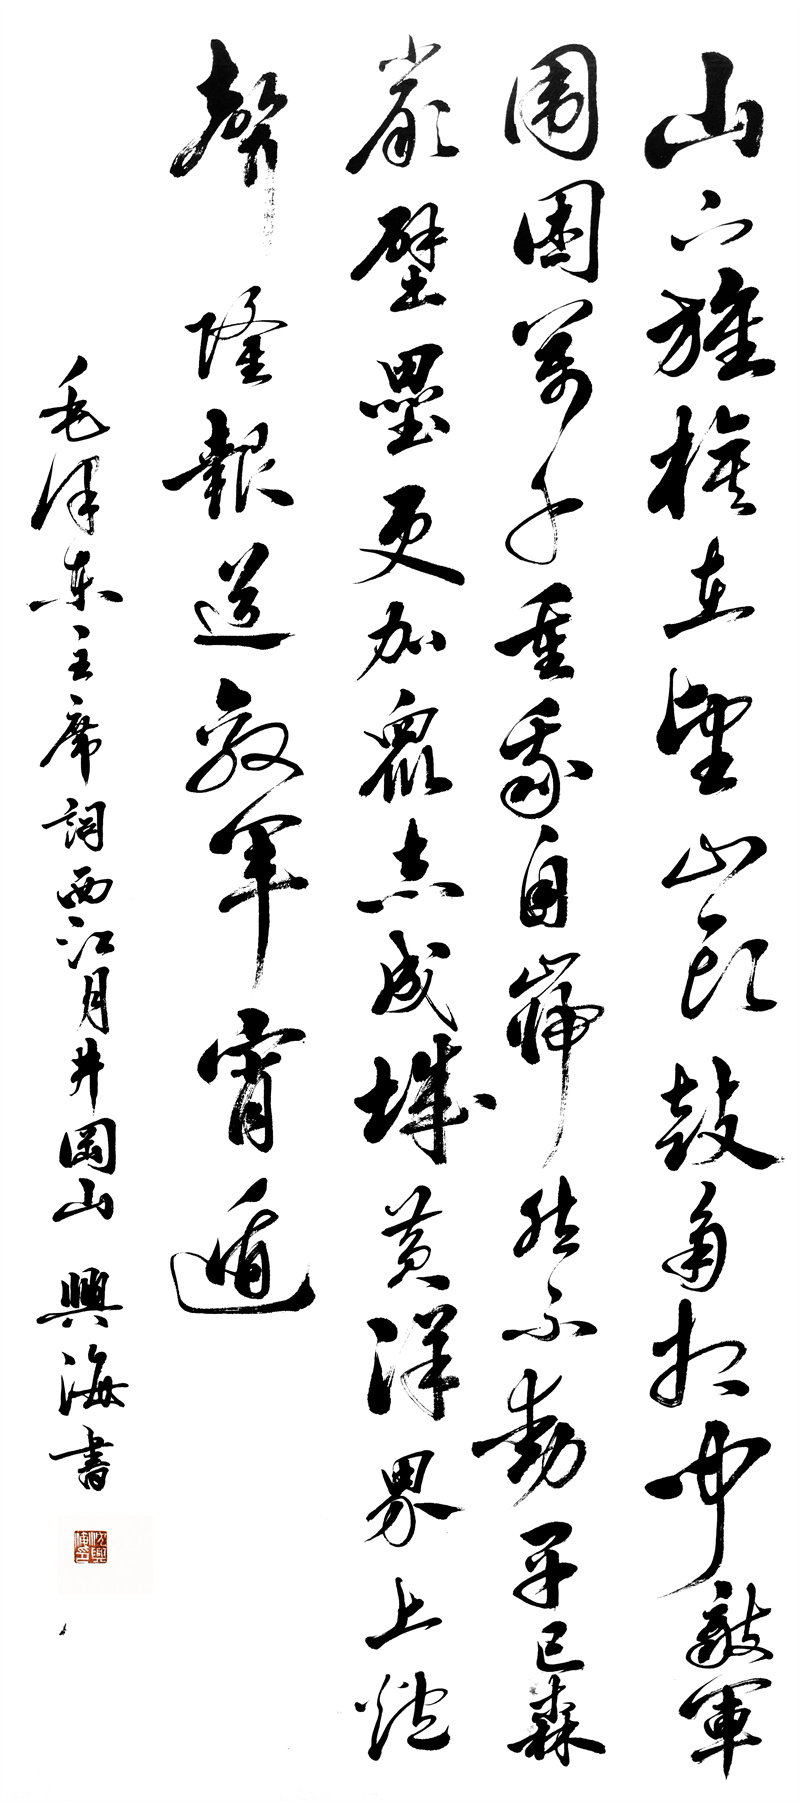 山下旌旗在望山頭鼓角相聞敵軍
围困萬千重我自巋然不動早已森
嚴壁壘更加眾志成城黃洋界上炮
聲隆報道敵軍宵遁
毛泽东主席詞西江月井岡山 興海書